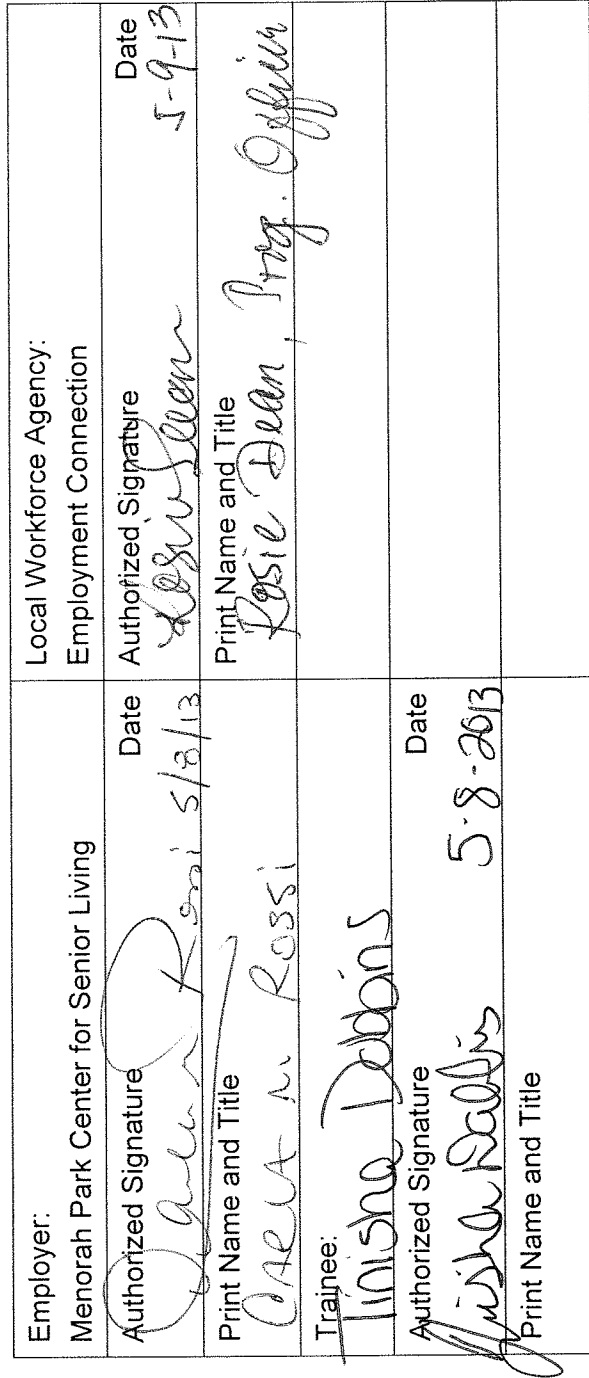 Employer:
Menorah Park Center for Senior Living
Authorized Signature Date
Carla M Rossi 5/8/13
Print Name and Title
CARLA M ROSSI
Trainee:
Tinisha Dobbins
Authorized Signature Date
Tinisha Dobbins 5-8-2013
Print Name and Title
Local Workforce Agency:
Employment Connection
Authorized Signature Date
Rosie Dean 5-9-13
Print Name and Title
Rosie Dean, Prog. Officer